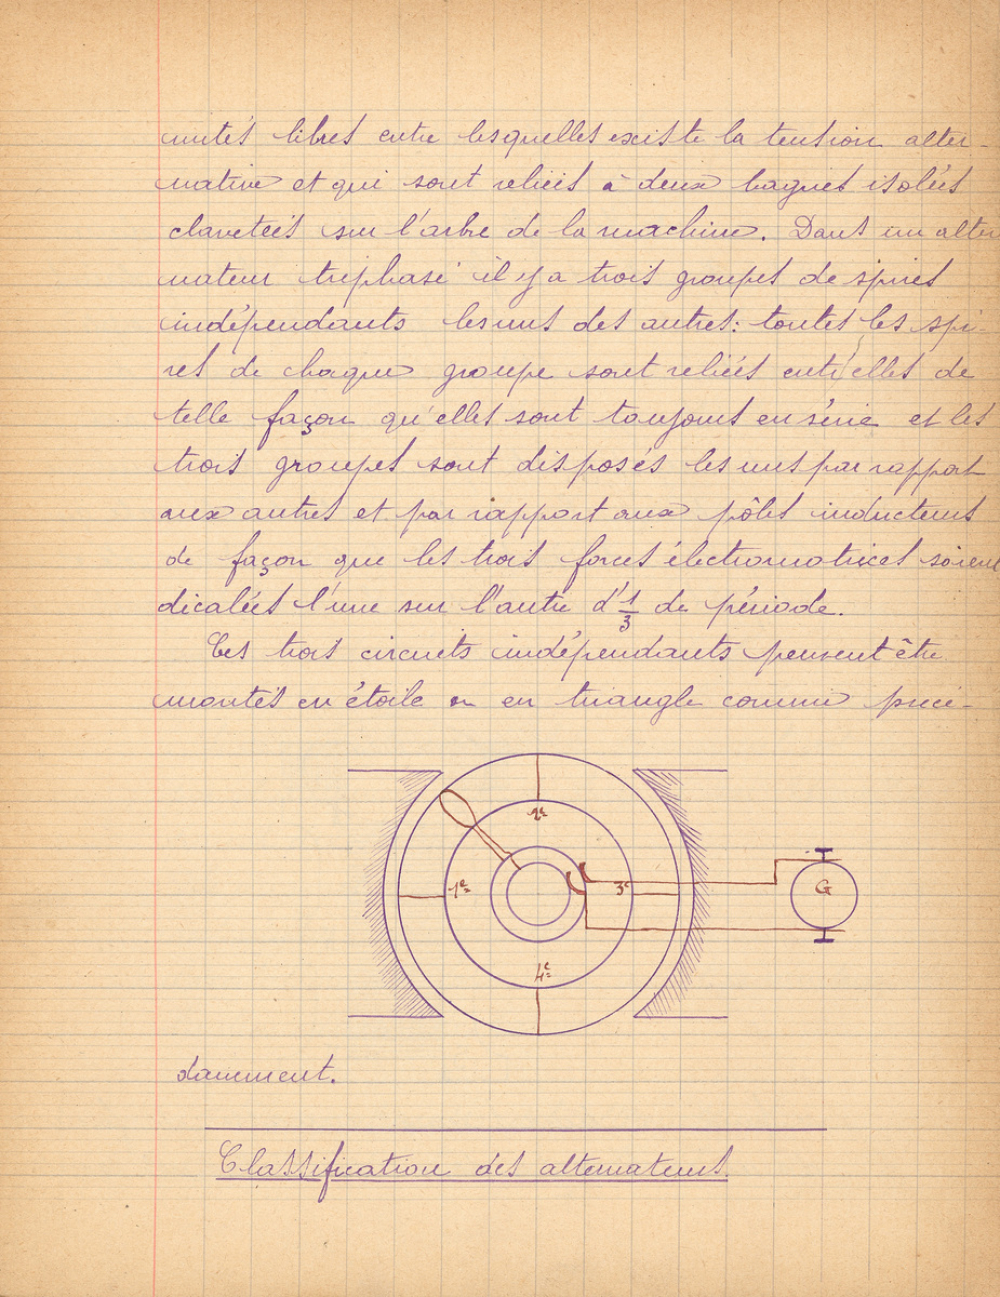 mités libres entre lesquelles existe la tension alter-
native et qui sont reliées à deux bagues isolées
clavetées sur l'arbre de la machine. Dans un alter
nateur triphasé il y a trois groupes de spires
indépendants les uns des autres: toutes les spi-
res de chaque groupe sont reliées entr'elles de
telle façon qu'elles sont toujours en série et les
trois groupes sont disposés les uns par rapport
aux autres et par rapport aux pôles inducteurs
de façon que les trois forces électromotrices soient
décalées l'une sur l'autre d'1/3 de période.
Ces trois circuits indépendants peuvent être
montés en étoile ou en triangle comme précé-
2e
1e
3e
G
4e
demment.
Classification des alternateurs